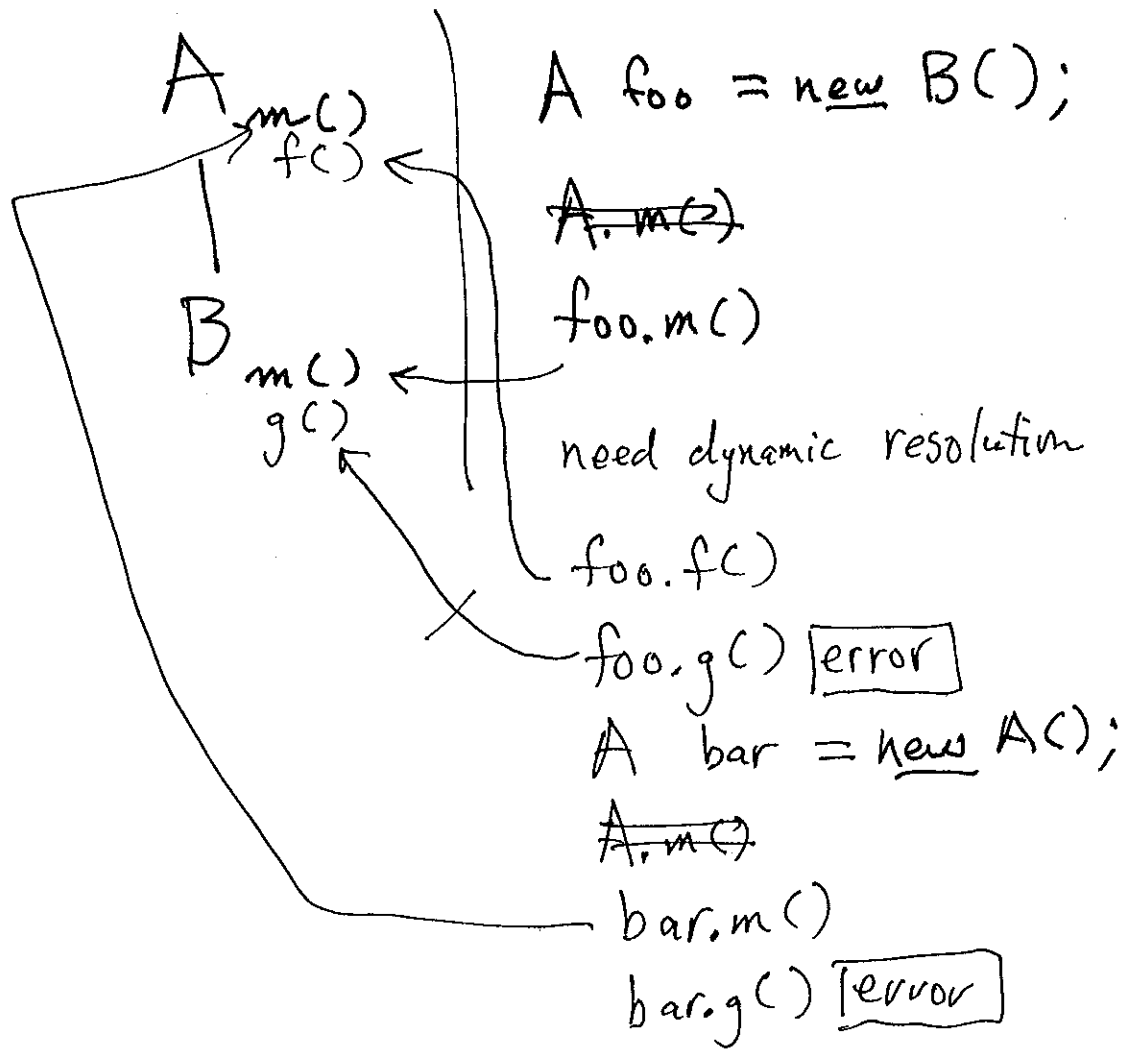 A
m()
f()
B
m()
g()
A foo = new B();
A.m()
foo.m()
need dynamic resolution
foo.f()
foo.g() error
A bar = new A();
A.m()
bar.m()
bar.g() error